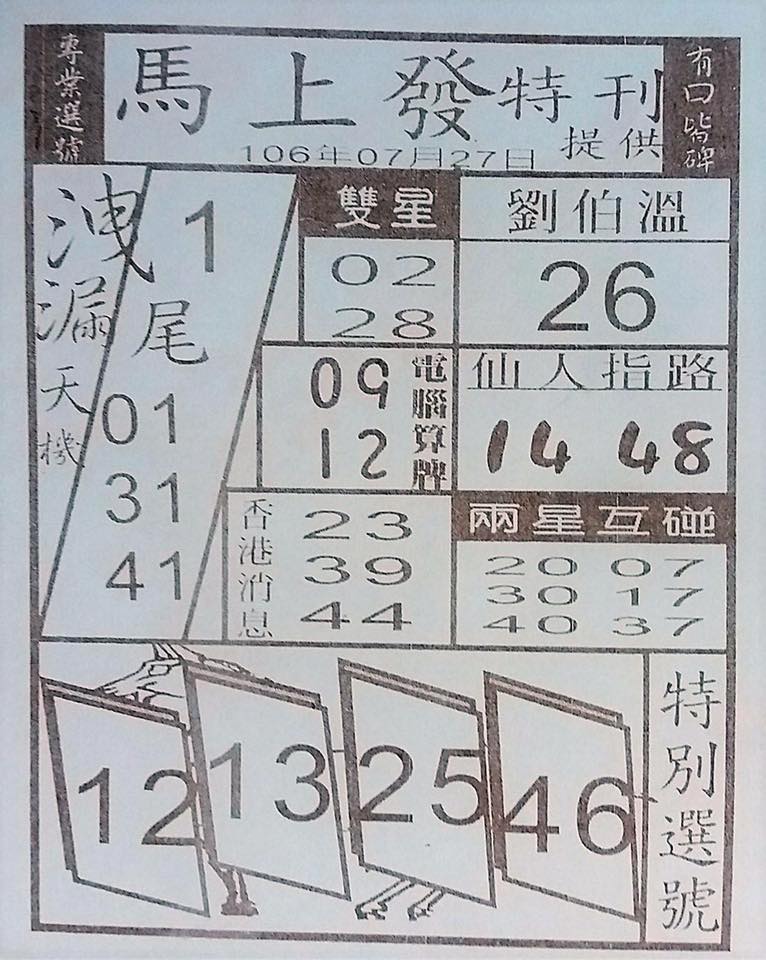 專業選號
馬上發特刊
提供
106年07月27日
有口皆碑
洩漏天機
1
尾
01
31
41
雙星
02
28
劉伯溫
26
電腦算牌
09
12
仙人指路
14 48
香港消息
23
39
44
兩星互碰
20 07
30 17
40 37
12 13 25 46
特別選號